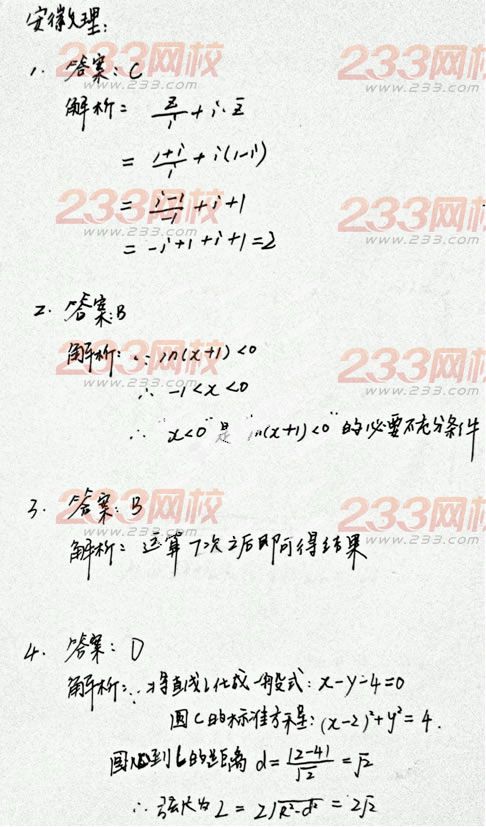 安徽文理:
1. 答案: C
解析: z/i + i·z̄
= (1+i)/i + i(1-i)
= (i-1)/-1 + i + 1
= -i+1+i+1=2
2. 答案:B
解析: ∵ ln(x+1)<0
∴ -1<x<0
∴ "x<0"是"ln(x+1)<0"的必要不充分条件
3. 答案: B
解析: 运算7次之后即可得结果
4. 答案: D
解析: ∵将直线l化成一般式: x-y-4=0
圆C的标准方程: (x-2)²+y²=4.
圆心到l的距离 d=|2-4|/√2=√2
∴弦长为 L=2√(R²-d²)=2√2
233网校
www.233.com
233网校
www.233.com
233网校
www.233.com
233网校
www.233.com
233网校
www.233.com
233网校
www.233.com
233网校
www.233.com